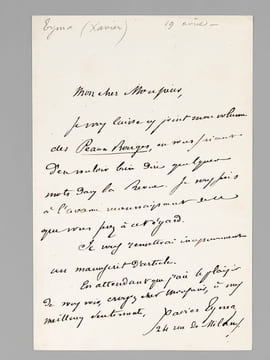 Eyma (Xavier) 19 août
Mon cher Monsieur,
Je vous laisse ci joint mon volume
des Peaux Rouges, en vous priant
d'en vouloir bien dire quelques
mots dans la Revue. Je vous suis
à l'avance reconnaissant de ce
que vous ferez à cet égard.
Je vous remettrai
un manuscrit d'article.
En attendant que j'aie le plaisir
de vous voir, croyez, cher Monsieur, à mes
meilleurs sentiments,
Xavier Eyma
24 rue de Milan